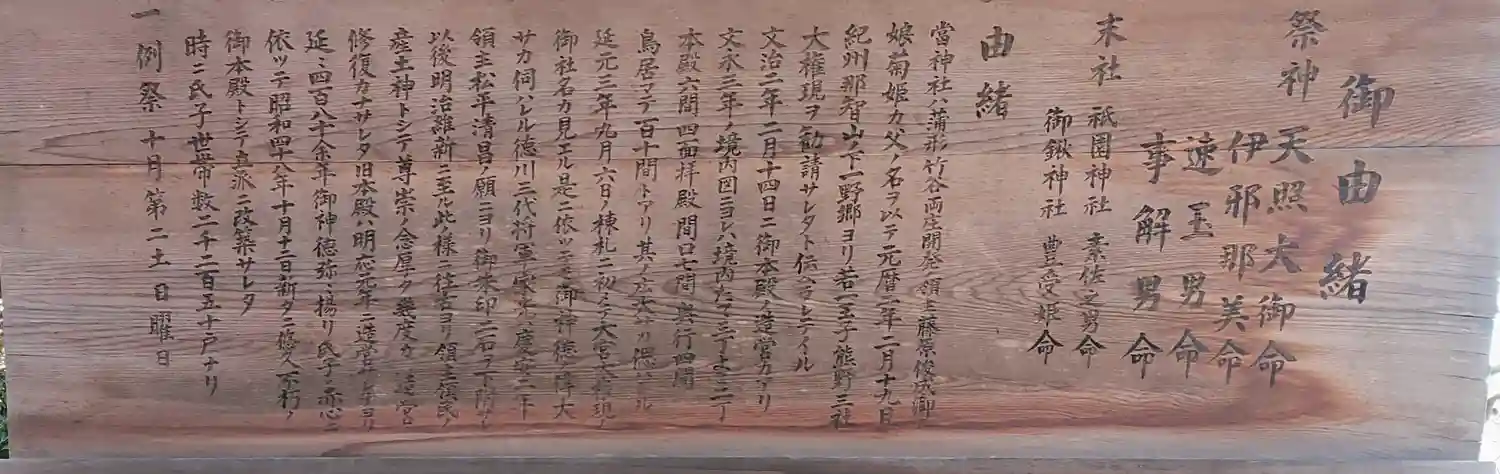 御由緒
祭神 天照大御命
伊邪那美命
速玉男命
事解男命
末社 祇園神社 素佐之男命
御鍬神社 豊受姫命
由緒
當神社ハ蒲形竹谷両庄開発領主藤原俊成卿
娘菊姫カ父ノ名ヲ以テ元暦二年二月十九日
紀州那智山ノ下一野郷ヨリ若一王子熊野三社
大権現ヲ勧請サレタト伝ヘラレテイル
文治二年二月十四日ニ御本殿ノ造営カアリ
文永三年ノ境内図ニヨレハ境内たて三丁よこ二丁
本殿六間四面拝殿間口七間奥行四間
鳥居マテ百十間トアリ其ノ広大ナリ
延元三年九月六日ノ棟札ニ初メテ大宮大権現ノ
御社名カ見エル是ニ依ツテモ御神徳ノ隆大
サカ伺ハレル徳川三代将軍家光ノ慶安二年
領主松平清昌ノ願ニヨリ御朱印二石ヲ下附サレ
以後明治維新ニ至ル此ノ様ニ往古ヨリ領主住民ノ
産土神トシテ尊崇ノ念厚ク幾度カノ造営
修復カナサレタ旧本殿ハ明応元年ニ造営サレテヨリ
延々四百八十余年御神徳弥々揚リ氏子ノ赤心ニ
依ツテ昭和四十八年十月十二日新タニ悠久不朽ノ
御本殿トシテ立派ニ改築サレタ
時ニ氏子世帯数二千二百五十戸ナリ
一 例祭 十月第二土日曜日